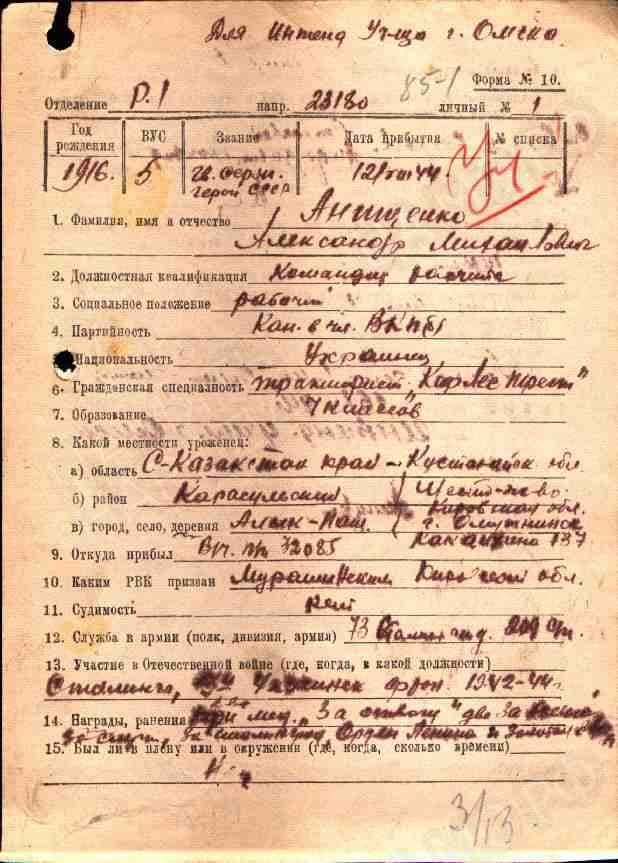 Для Интенд Уч-ща г. Омска.
85-1
Форма № 10.
Отделение Р.1 напр. 23180 личный № 1
Год рождения ВУС Звание Дата прибытия № списка
1916. 5 Гв. Серж. Герой СССР 12/VIII 44.
1. Фамилия, имя и отчество Анищенко
Александр Михайлович
2. Должностная квалификация Командир расчета
3. Социальное положение рабочий
4. Партийность Кан. в чл. ВКП(б)
Национальность Украинец
6. Гражданская специальность тракторист
7. Образование 7 классов
8. Какой местности уроженец:
а) область С-Казахстан край - Кустанайск обл
б) район Карасульский
Кировская обл.
в) город, село, деревня г. Омутнинск
137
9. Откуда прибыл В/ч. пп 32085
10. Каким РВК призван Мурашинским Кировской обл.
11. Судимость нет
12. Служба в армии (полк, дивизия, армия) 73
13. Участие в Отечественной войне (где, когда, в какой должности)
фрон. 1942-44г.
14. Награды, ранения мед. „За отвагу" две
Орден Ленина и Золотая
15. Был ли в плену или в окружении (где, когда, сколько времени)
3/13.